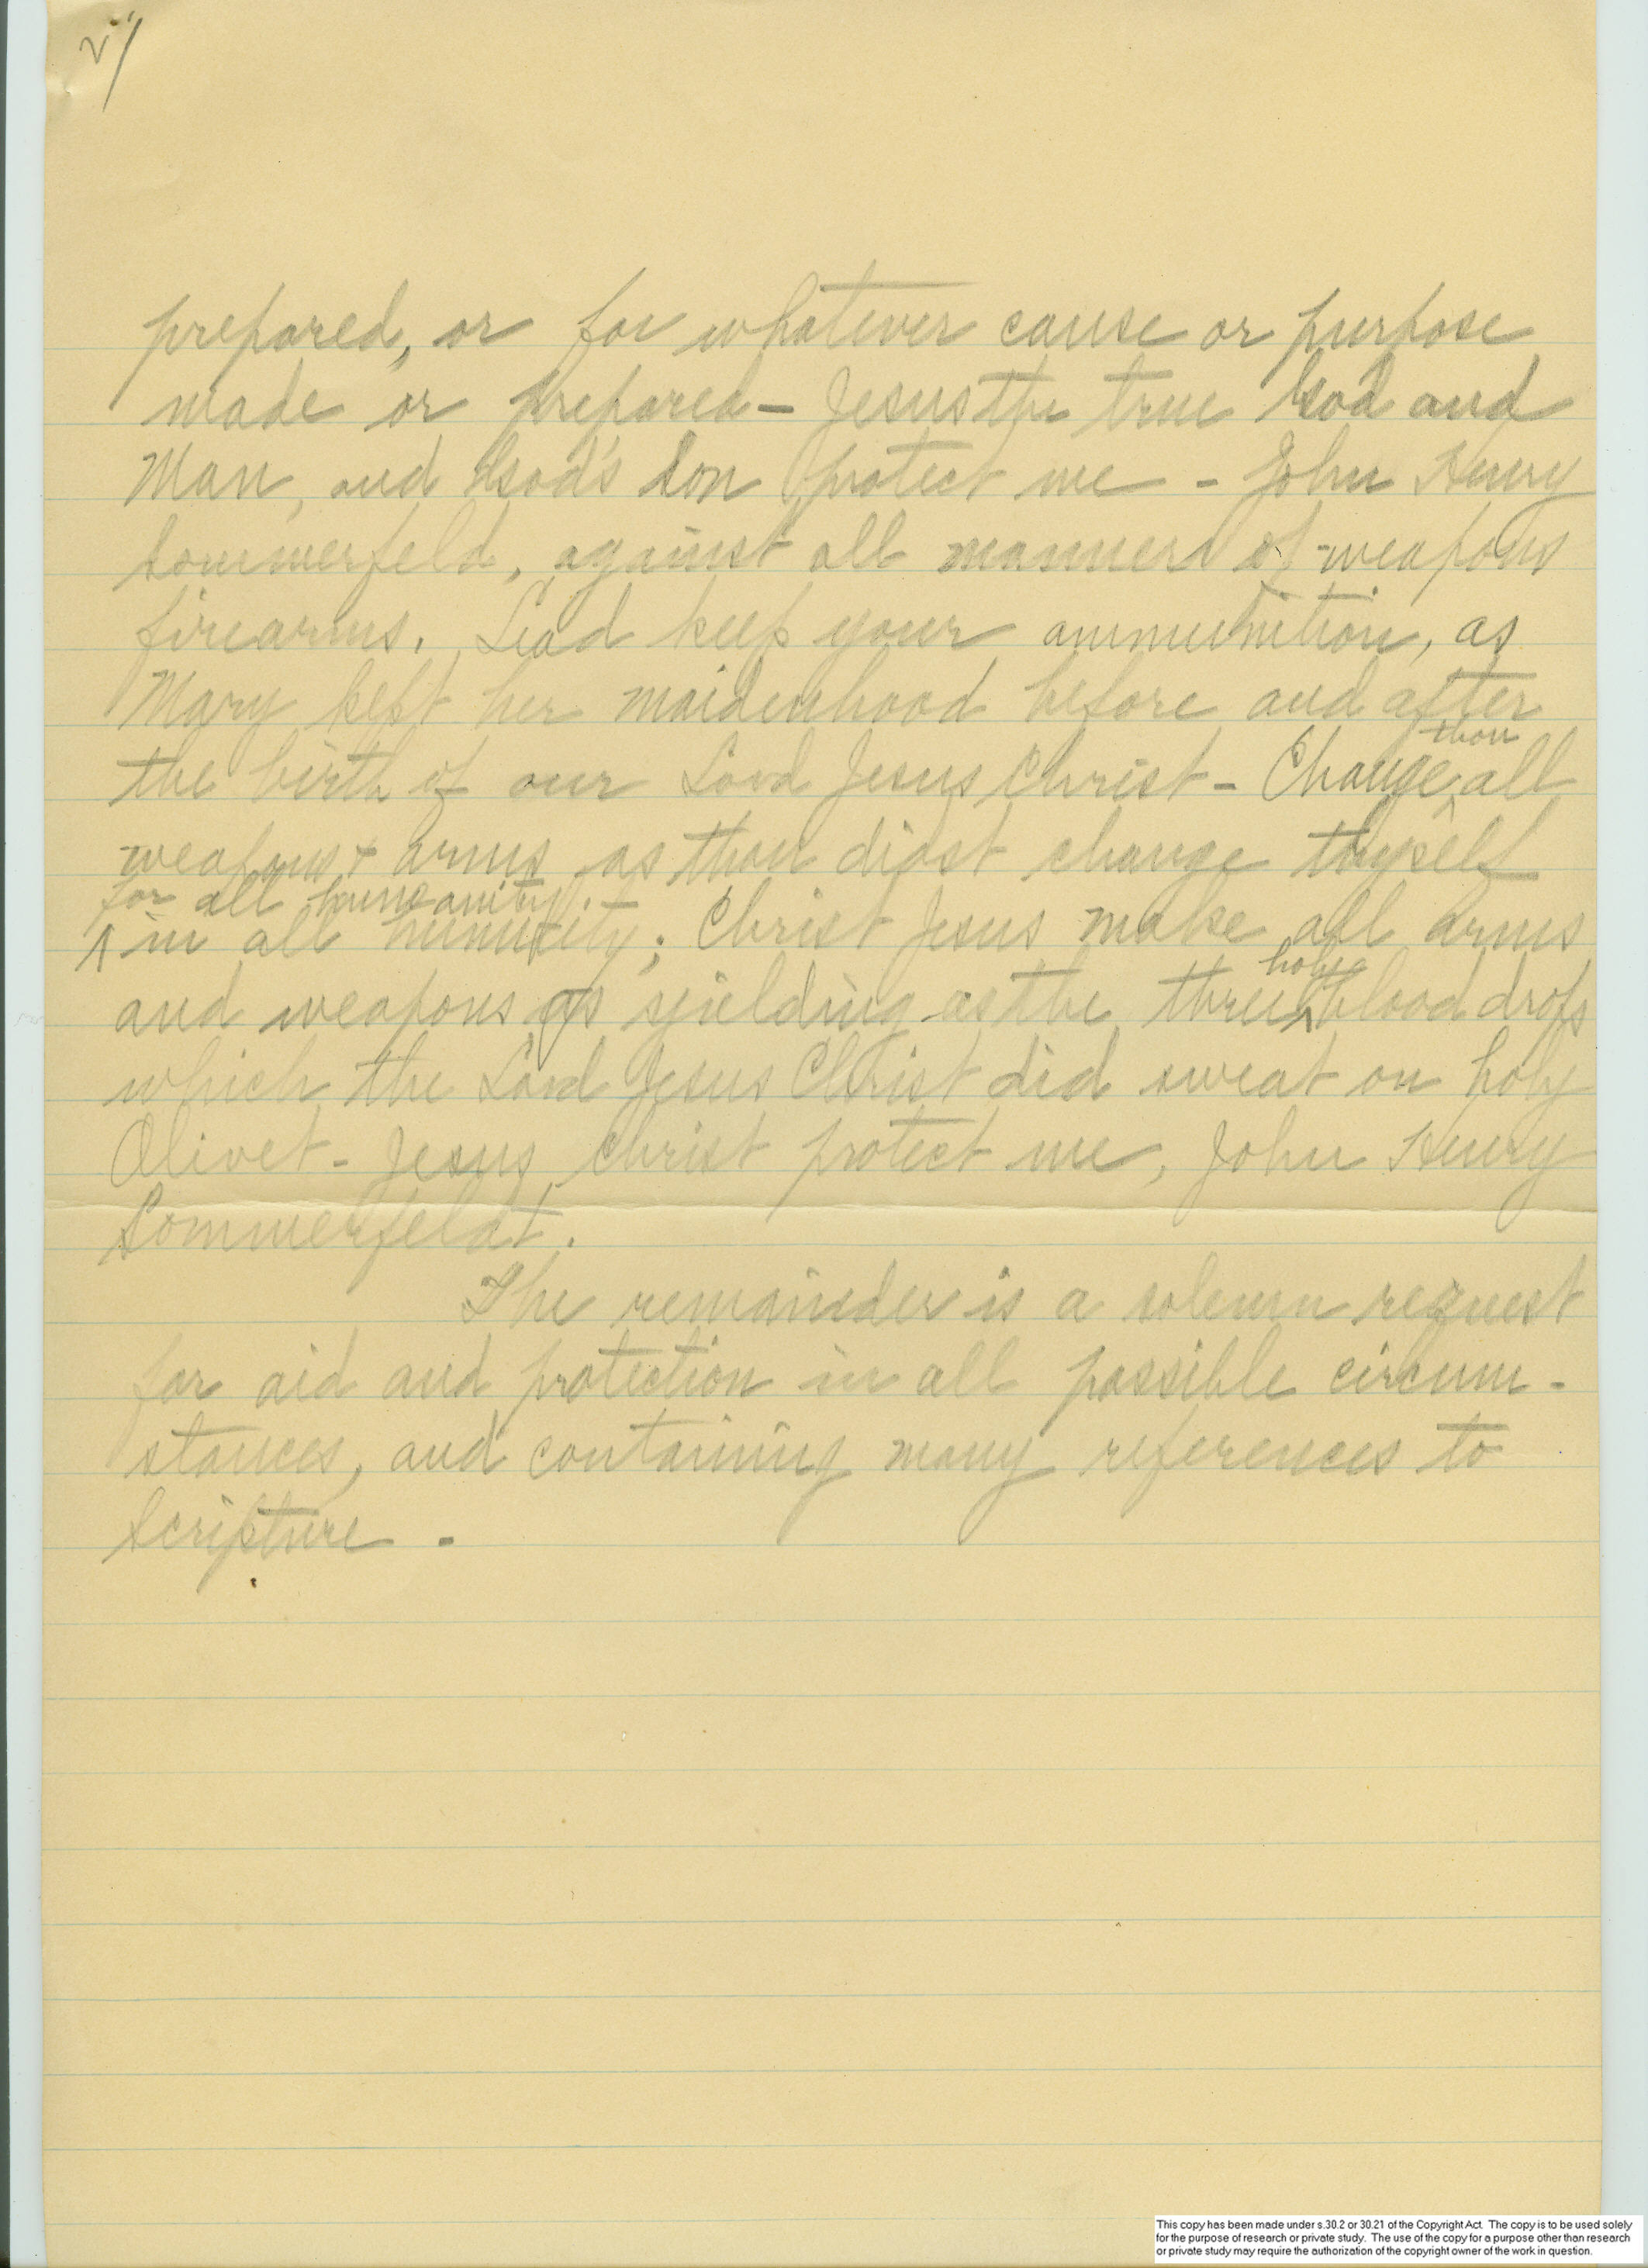 2/
prepared, or for whatever cause or purpose
made or prepared - Jesus the true God and
Man, and God's Son protect me - John Henry
Sommerfeld, against all manners of weapons
firearms. Lead keep your ammunition, as
Mary kept her maidenhood before and after
thou
the birth of our Lord Jesus Christ - Change all
weapons + arms as thou didst change thyself
for all humanity.
in all humility; Christ Jesus make all arms
holy
and weapons as yielding as the three blood drops
which the Lord Jesus Christ did sweat on holy
Olivet - Jesus Christ protect me, John Henry
Sommerfeldt.
The remainder is a solemn request
for aid and protection in all possible circum-
stances, and containing many references to
Scripture -
This copy has been made under s.30.2 or 30.21 of the Copyright Act. The copy is to be used solely
for the purpose of research or private study. The use of the copy for a purpose other than research
or private study may require the authorization of the copyright owner of the work in question.